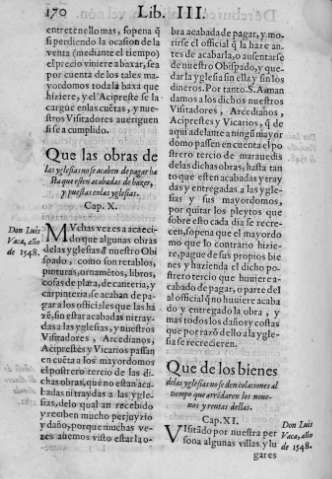 170
Lib. III.
entretenello mas, so pena q̃
si perdiendo la ocasion de la
venta (mediante el tiempo)
el precio viniere a baxar, sea
por cuenta de los tales ma-
yordomos toda la baxa que
hiziere, y el Acipreste se la
cargue en las cuẽtas, y nue-
stros Visitadores aueriguen
si se a cumplido.
Que las obras de
las yglesias no se acaben de pagar ha
sta que esten acabadas de hazer,
y puestas en las yglesias.
Cap. X.
Don Luis
Vaca, año
de 1548.
MVchas vezes a acaeci-
do que algunas obras
de las yglesias d̃ nuestro Obi
spado, como son retablos,
pinturas, ornamẽtos, libros,
cosas de plata, de canteria, y
carpinteria se acaban de pa-
gar a los officiales que las há
zẽ, sin estar acabadas ni tray-
das a las yglesias, y nuestros
Visitadores, Arcedianos,
Aciprestes y Vicarios passan
en cuẽta a los mayordomos
el postrero tercio de las di-
chas obras, que no estan aca-
badas ni traydas a las ygle-
sias, de lo qual an recebido
y reciben mucho perjuyzio
y daño, porque muchas ve-
zes auemos visto estar la o-
bra acabada de pagar, y mo-
rirse el official q̃ la haze an-
tes de acabarla, o ausentarse
de nuestro Obispado, y que-
dar la yglesia sin ella y sin los
dineros. Por tanto. S. A. man
damos a los dichos nuestros
Visitadores, Arcedianos,
Aciprestes y Vicarios, q̃ de
aqui adelante a ningũ mayor
domo passen en cuenta el po
strero tercio de marauedis
delas dichas obras, hasta tan
to que esten acabadas y tray
das y entregadas a las ygle-
sias y sus mayordomos,
por quitar los pleytos que
sobre esto cada dia se recre-
cen, so pena que el mayordo
mo que lo contrario hizie-
re, pague de sus propios bie
nes y hazienda el dicho po-
strero tercio que huuiere a-
cabado de pagar, o parte del
al official q̃ no huuiere acaba
do y entregado la obra, y
mas todos los daños y costas
que por razõ dello a la ygle-
sia se recrecieren.
Que de los bienes
de las yglesias no se den colaciones al
tiempo que arrẽdaren los noue-
nos y rentas dellas.
Cap. XI.
Don Luis
Vaca, año
de 1548.
VIsitãdo por nuestra per
sona algunas villas y lu
gares